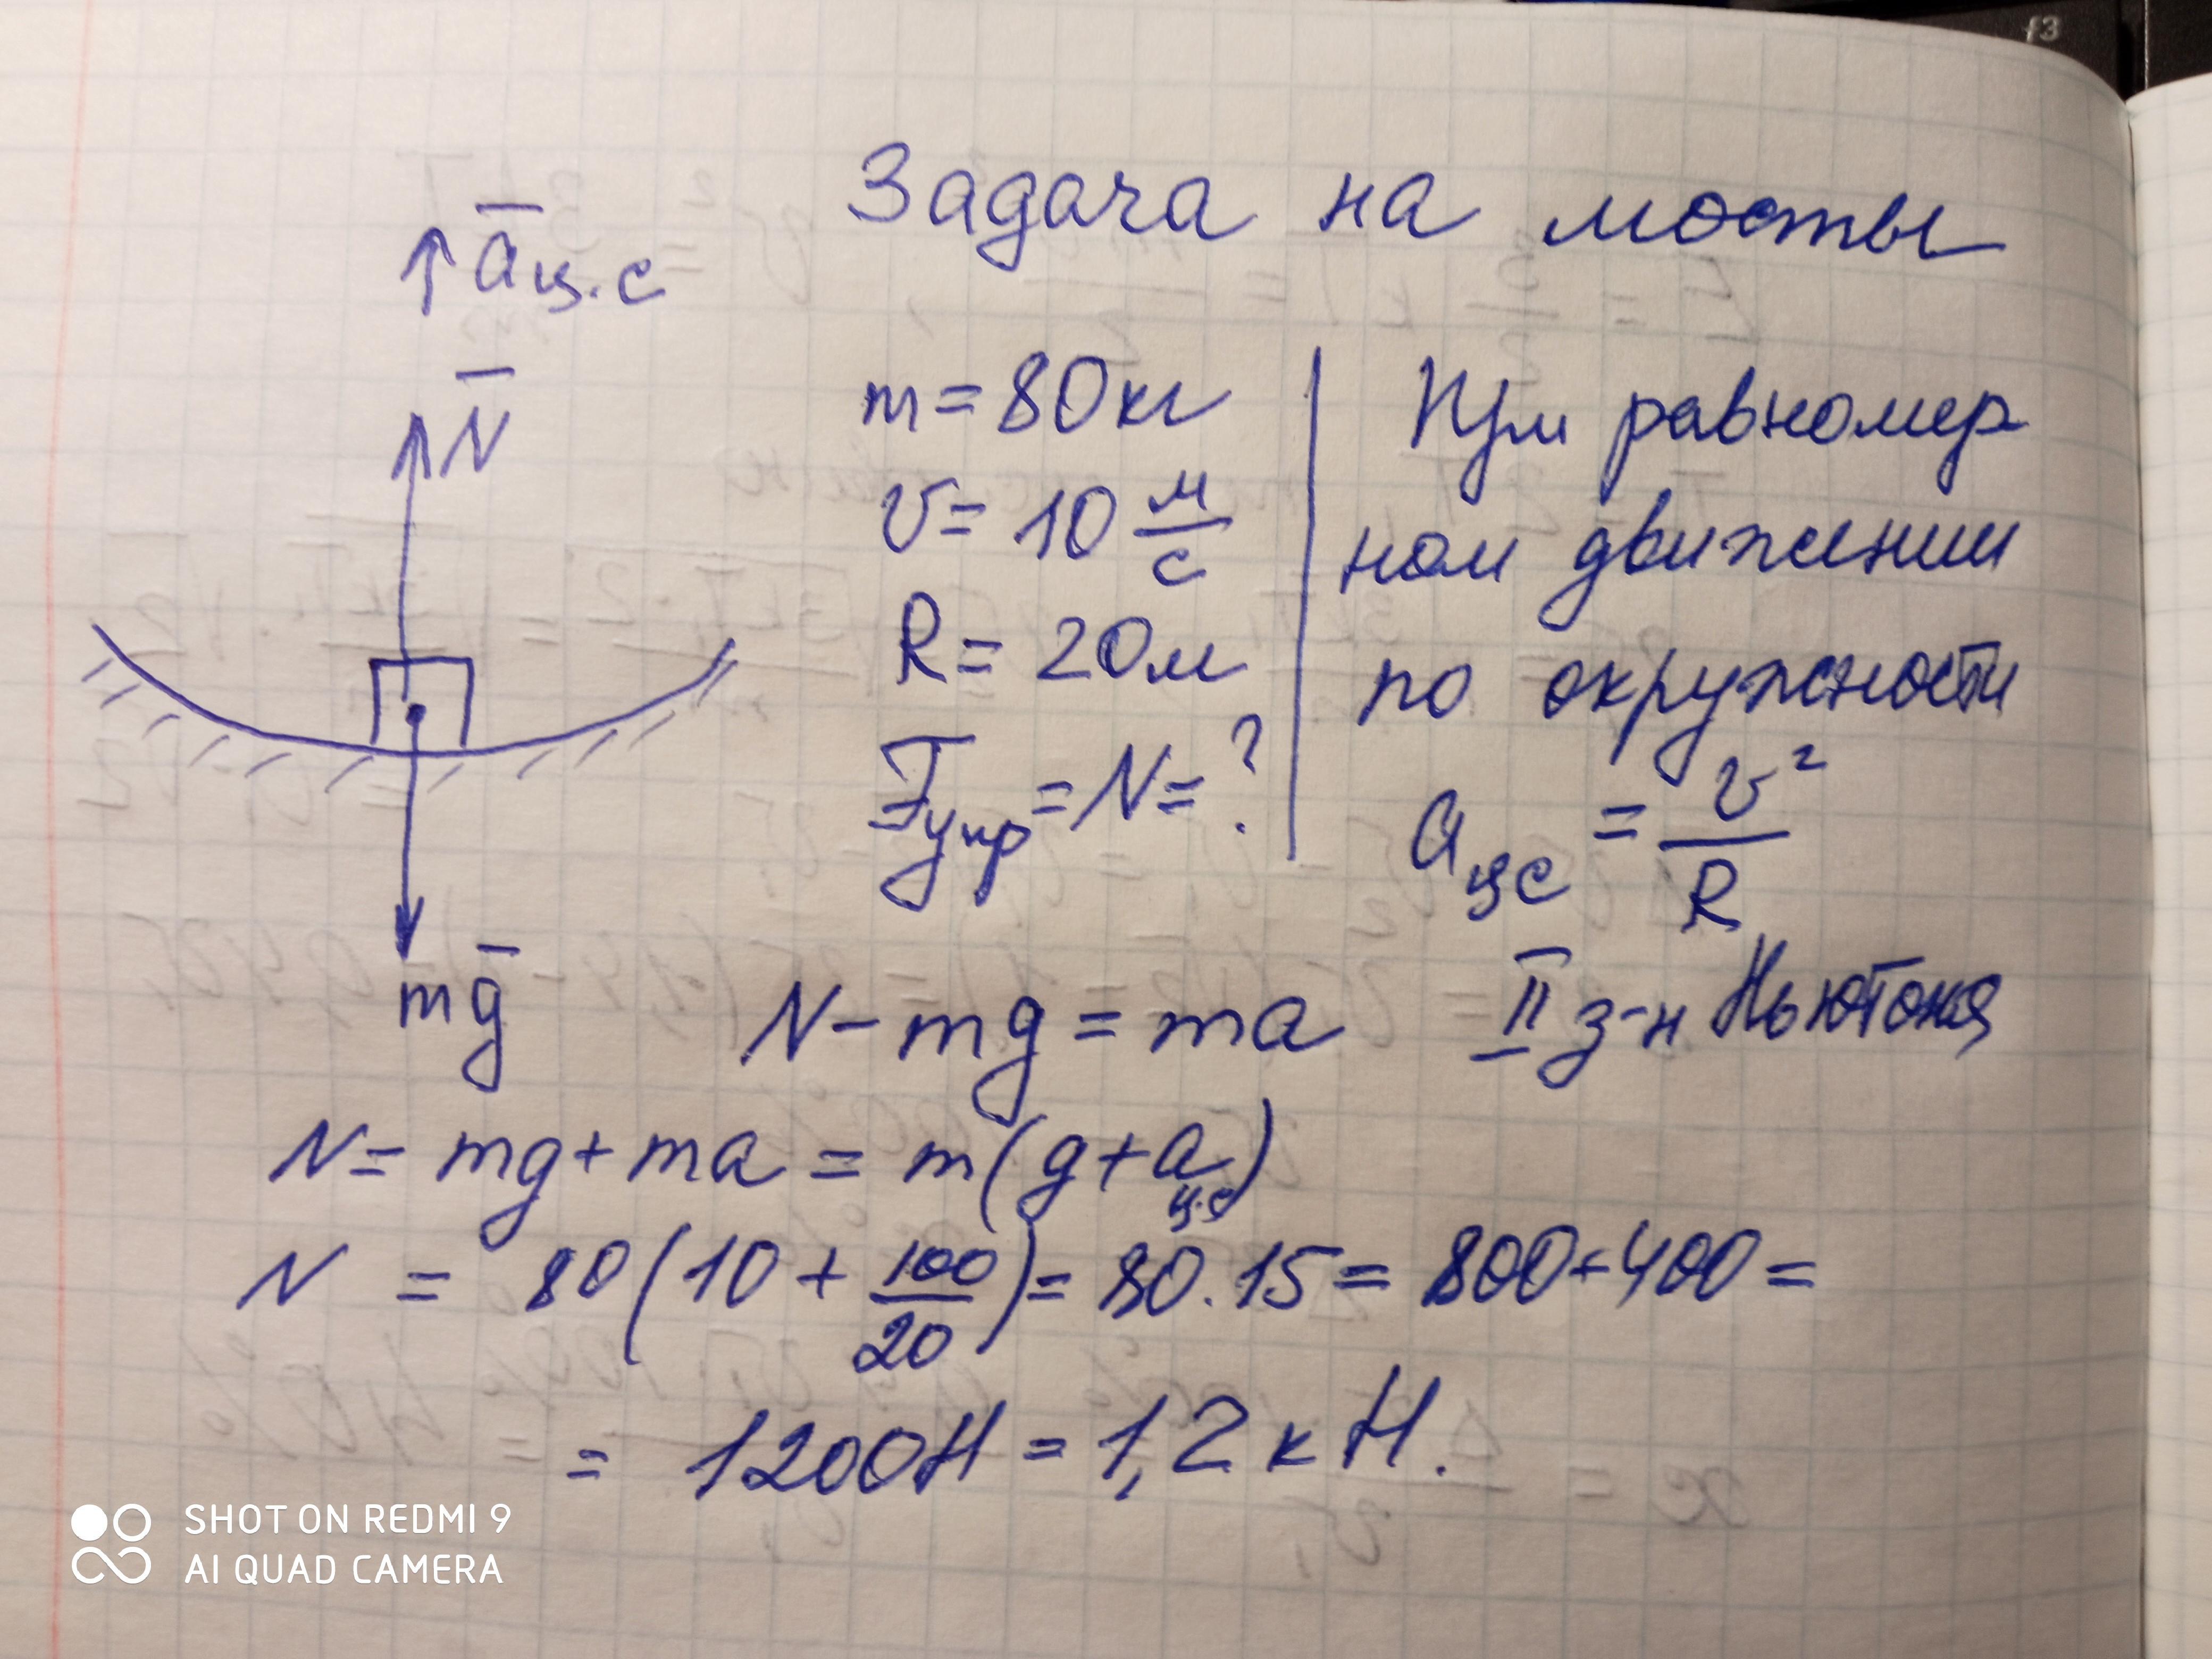 f3
Задача на мосты
a ц.с
N
mg
m = 80 кг
v = 10 м/с
R = 20 м
Fупр = N = ?
При равномер
ном движении
по окружности
aцс = v²/R
N - mg = ma II з-н Ньютона
N = mg + ma = m(g + aц.с)
N = 80(10 + 100/20) = 80 . 15 = 800 + 400 =
= 1200Н = 1,2 кН.
SHOT ON REDMI 9
AI QUAD CAMERA